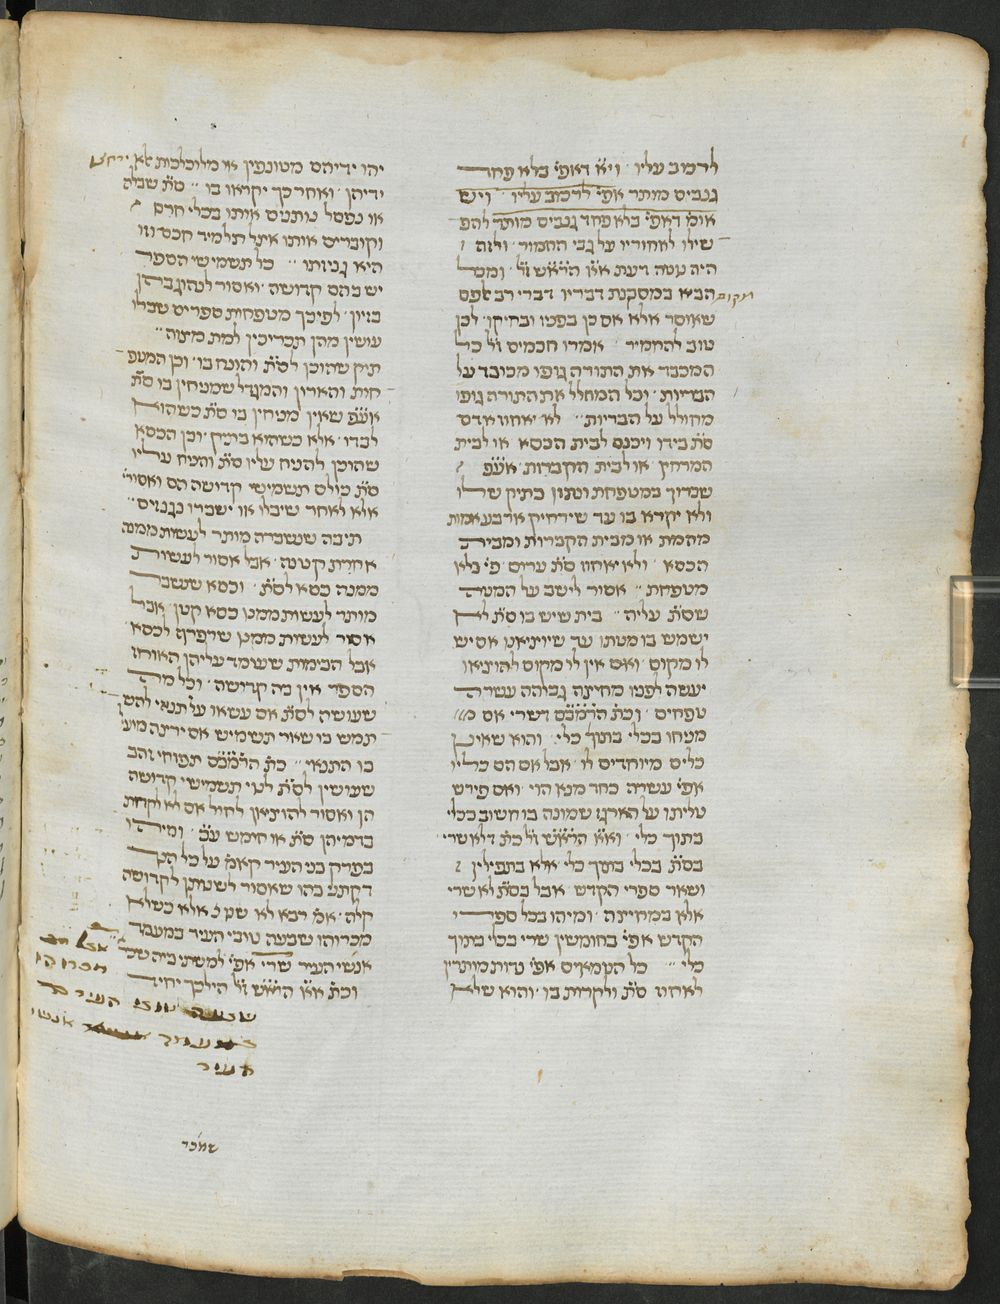 לרכוב עליו · וי״א דאפי׳ בלא פחד
גנבים מותר אפי׳ לרכוב עליו · ויש
אומ׳ דאפי׳ בלא פחד גנבים מותר להפ
שילו לאחוריו על גבי החמור · ולזה
היה נוטה דעת א״א הרא״ש ז״ל · ומטל
הבא במסקנת דבריו דברי רב אלפס
שאוסר אלא אם כן בפניו ובחיקו · לכן
טוב להחמיר · אמרו חכמים ז״ל כל
המכבד את התורה גופו מכובד על
הבריות · וכל המחלל את התורה גופו
מחולל על הבריות · לא יאחוז אדם
ס״ת בידו ויכנס לבית הכסא או לבית
המרחץ או לבית הקברות · אע״פ
שכרוך במטפחת ונתון בתיק שלו
ולא יקרא בו עד שירחיק ארבע אמות
מהמת או מבית הקברות ומבית
הכסא · ולא יאחוז ס״ת ערום פי׳ בלא
מטפחת · אסור לישב על המטה
שס״ת עליה · בית שיש בו ס״ת לא
ישמש בו מטתו עד שיוציאנו אם יש
לו מקום · ואם אין לו מקום להוציאו
יעשה לפניו מחיצה גבוהה עשרה
טפחים · וכת׳ הרמב״ם דשרי אם
מניחו בכלי בתוך כלי · והוא שאינן
כלים מיוחדים לו · אבל אם הם כליו
אפי׳ עשרה כחד מנא הוי · ואם פירש
טליתו על הארגז שמונח בו חשוב ככלי
בתוך כלי · וא״א הרא״ש ז״ל כת׳ דלא שרי
בס״ת בכלי בתוך כלי אלא בתפילין
ושאר ספרי הקדש אבל בס״ת לא שרי
אלא במחיצה · ומיהו בכל ספרי
הקדש אפי׳ בחומשין שרי בכלי בתוך
כלי · כל הטמאים אפי׳ נדות מותרין
לאחוז ס״ת ולקרות בו · והוא שלא
מקום
יהו ידיהם מטונפין או מלוכלכות אלא ירחצו
ידיהן · ואחר כך יקראו בו · ס״ת שבלה
או נפסל נותנים אותו בכלי חרס
וקוברים אותו אצל תלמיד חכם וזו
היא גניזתו · כל תשמישי הספר
יש בהם קדושה · ואסור לנהוג בהן
בזיון · לפיכך מטפחות ספרים שבלו
עושין מהן תכריכין למת מצוה
תיק שהוכן לס״ת והונח בו · וכן המטפ
חות והארון והמגדל שמניחין בו ס״ת
אע״פ שאין מניחין בו ס״ת כשהוא
לבדו · אלא כשהוא בתיק · וכן הכסא
שהוכן להניח עליו ס״ת והניח עליו
ס״ת כולם תשמישי קדושה הם ואסורי׳
אלא לאחר שיבלו או ישברו נגנזים
תיבה שנשברה מותר לעשות ממנה
אחרת קטנה · אבל אסור לעשות
ממנה כסא לס״ת · וכסא שנשבר
מותר לעשות ממנו כסא קטן · אבל
אסור לעשות ממנו שרפרף לכסא
אבל הבימות שעומד עליהן האוחז
הספר אין בה קדושה · וכל מה
שעושה לס״ת אם עשאו על תנאי להש
תמש בו שאר תשמיש אם ירצה מועי׳
בו התנאי · כת׳ הרמב״ם תפוחי זהב
שעושין לס״ת לנוי תשמישי קדושה
הן ואסור להוציאן לחול אם לא לקנות
בדמיהן ס״ת או חומש ע״כ · ומיהו
בפרק בני העיר קאמ׳ על כל הנך
דקתני בהו שאסור לשנותן לקדושה
קלה · אמ׳ רבא לא שנו אלא כשלא
מכרוהו שבעה טובי העיר במעמד
אנשי העיר שרי אפי׳ למשתי ביה שכר
וכת׳ א״א הרא״ש ז״ל הילכך יחיד
אבל אם
מכרוהו
שבעה טובי העיר
במעמד אנשי
העיר
שמכר